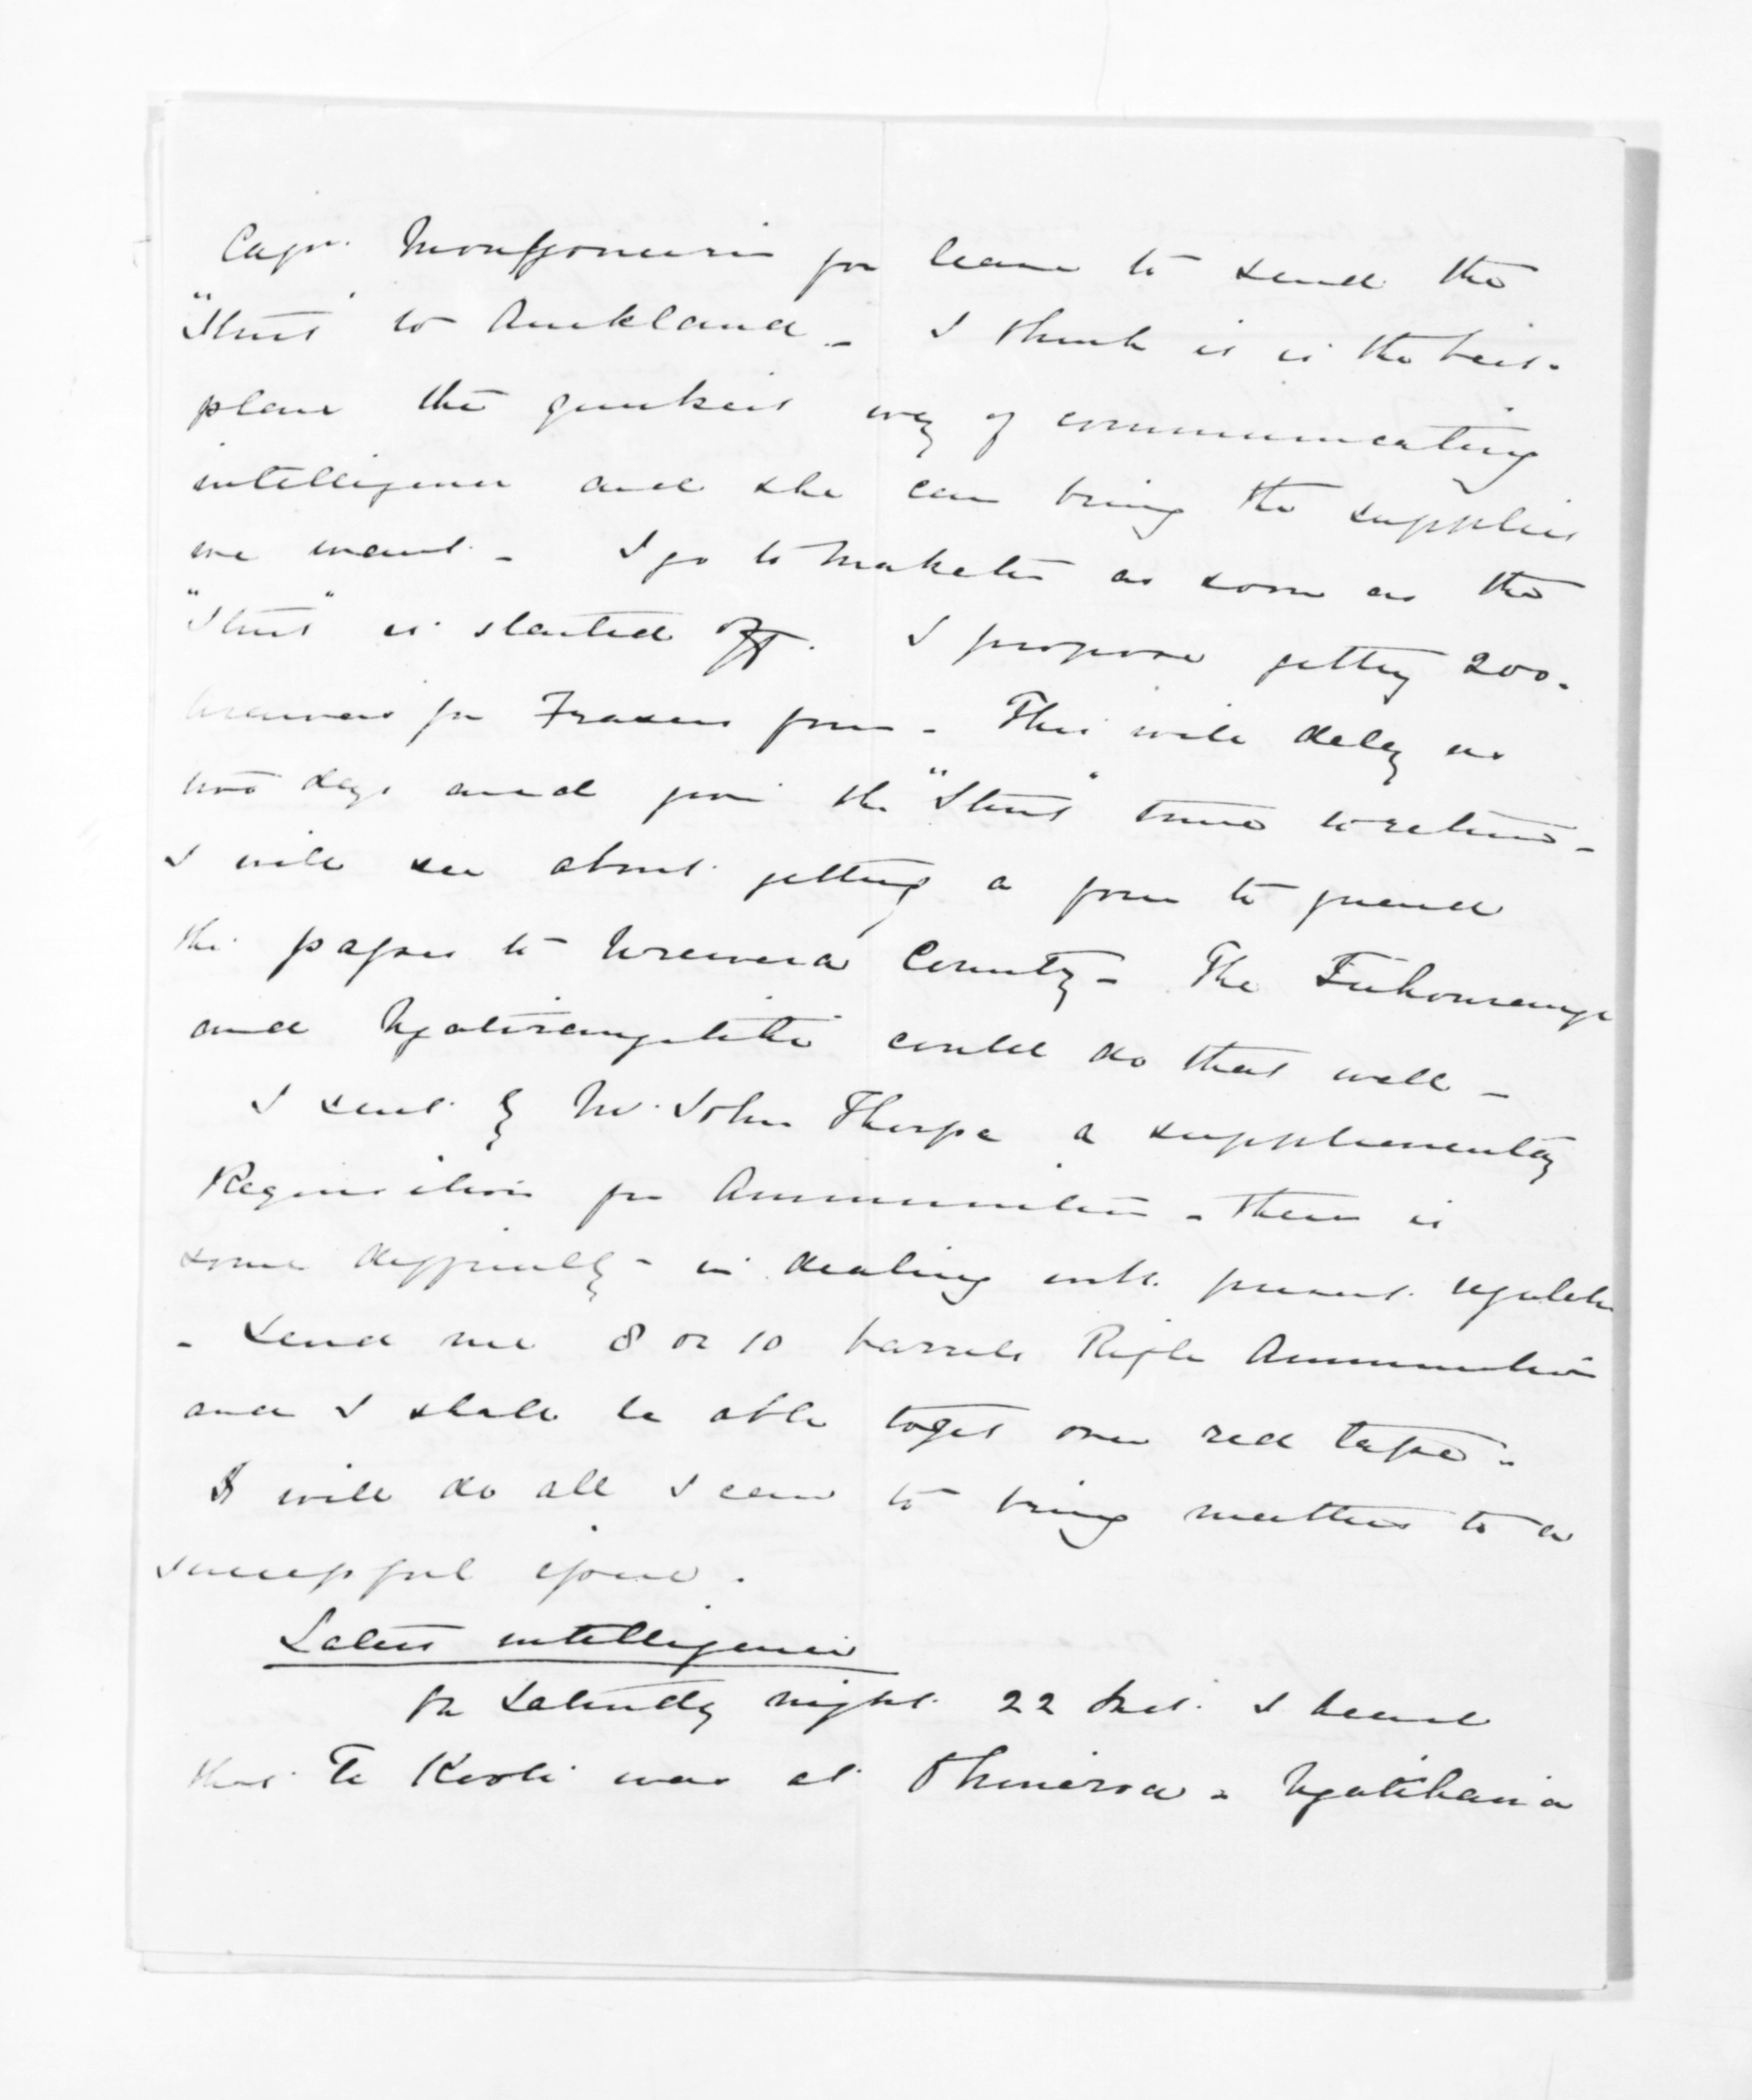 Capn. Montgomerie for leave to send the
"Sturt" to Auckland - I think it is the best
plan the quickest way of communicating
intelligence and she can bring the supplies
we want - I go to Maketu as soon as the
"Sturt" is started off. I propose getting 200
Arawas for Frasers force - This will delay us
two days and give the "Sturt" time to return -
I will see about getting a force to guard
the passes to Urewera County - The Tuhourangi
and Ngatirangitihi could do that well -
I sent by Mr. John Thorpe a supplementary
Requisition for Ammunition - there is
some difficulty - in dealing with present
- Send me 8 or 10 barrels Rifle Ammunition
and I shall be able to get over red tape -
I will do all I can to bring matters to a
successful issue.
Latest intelligence
On Saturday night 22 Inst. I heard
that Te Kooti was at Ohiwa - Ngatihaua